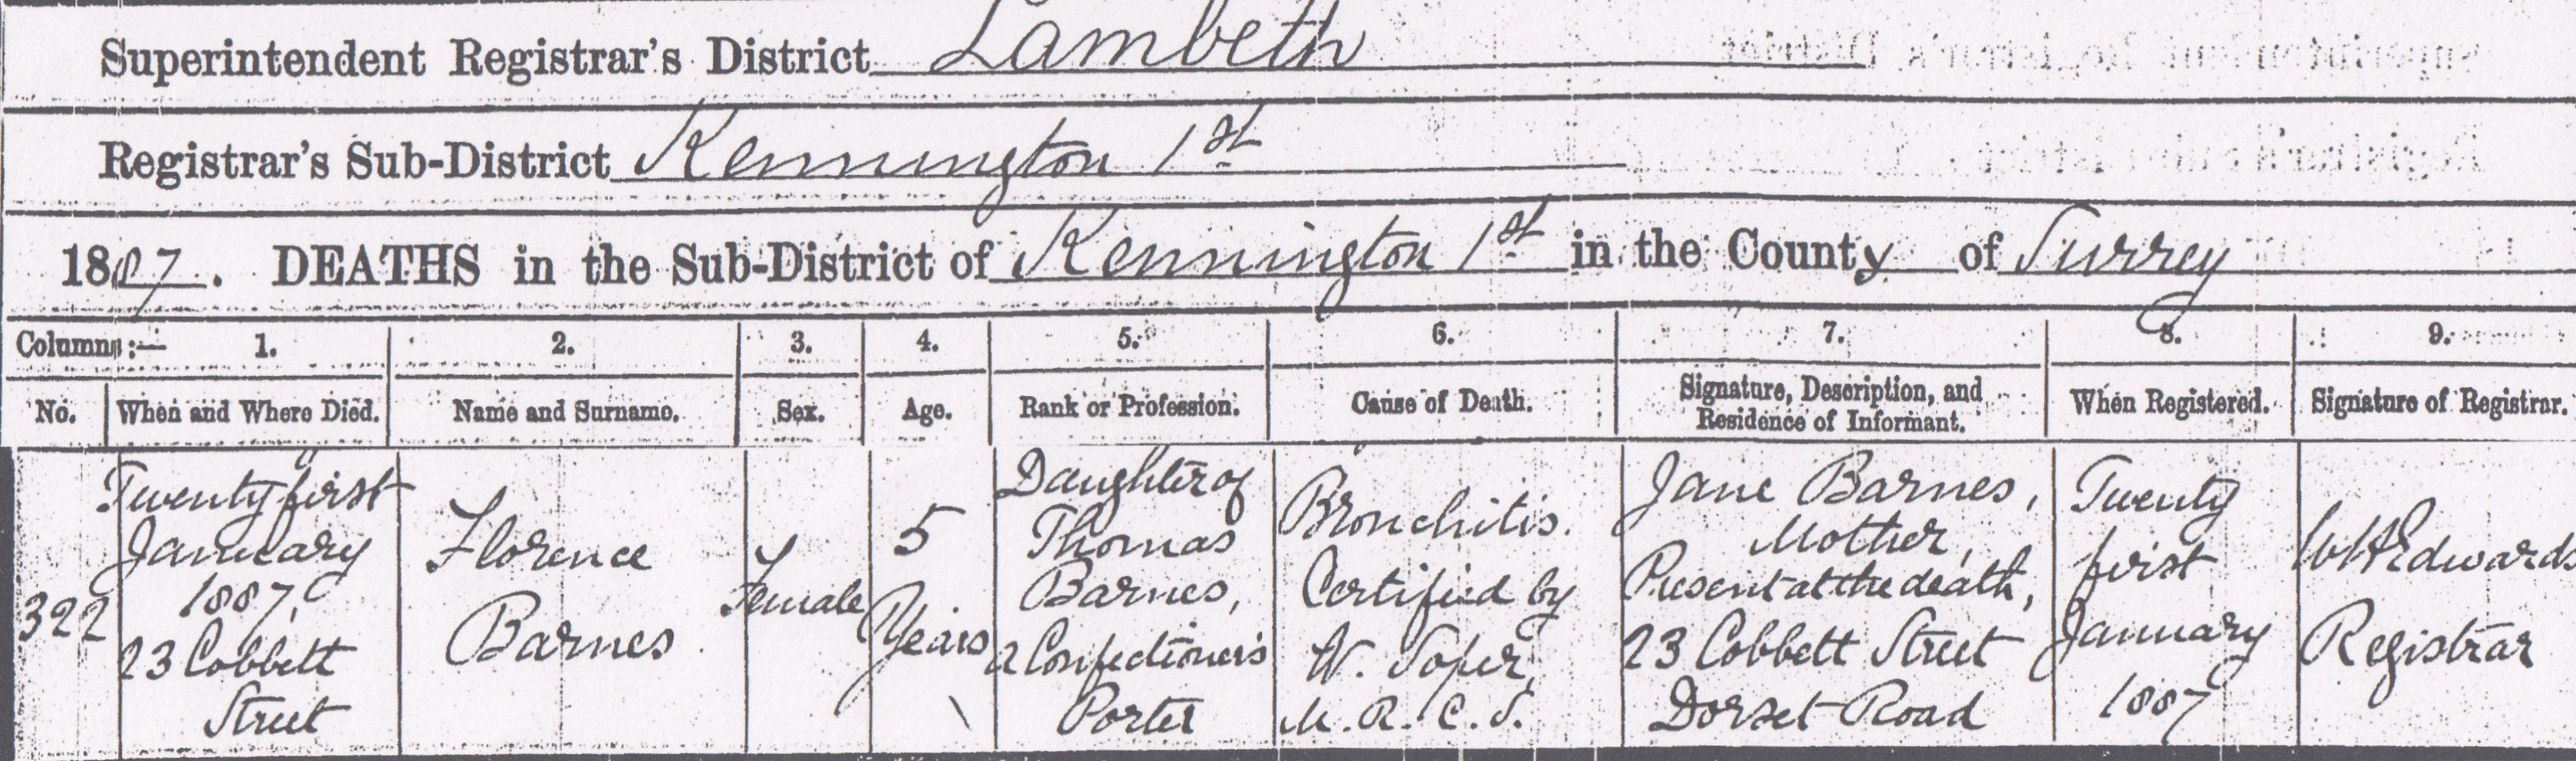 Superintendent Registrar's District Lambeth
Registrar's Sub-District Kennington 1st
1887. DEATHS in the Sub-District of Kennington 1st in the County of Surrey
Columns:— 1. 2. 3. 4. 5. 6. 7. 8. 9.
No. When and Where Died. Name and Surname. Sex. Age. Rank or Profession. Cause of Death. Signature, Description, and Residence of Informant. When Registered. Signature of Registrar.
322
Twenty first
January
1887,
23 Cobbett
Street
Florence
Barnes
Female
5
Years
Daughter of
Thomas
Barnes,
a Confectioner's
Porter
Bronchitis.
Certified by
W. Soper,
M. R. C. S.
Jane Barnes,
Mother,
Present at the death,
23 Cobbett Street
Dorset Road
Twenty
first
January
1887
WH Edwards
Registrar